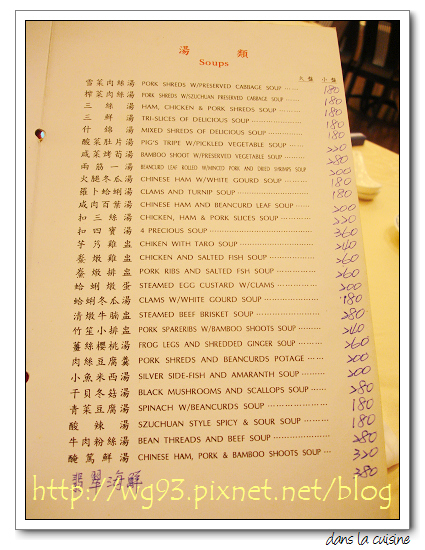 湯 類
Soups
大盤 小盤
雪菜肉絲湯 PORK SHREDS W/PRESERVED CABBAGE SOUP 180
榨菜肉絲湯 PORK SHREDS W/SZCHUAN PRESERVED CABBAGE SOUP 180
三絲湯 HAM, CHICKEN & PORK SHREDS SOUP 180
三鮮湯 TRI-SLICES OF DELICIOUS SOUP 180
什錦湯 MIXED SHREDS OF DELICIOUS SOUP 180
酸菜肚片湯 PIG'S TRIPE W/PICKLED VEGETABLE SOUP 220
咸菜烤筍湯 BAMBOO SHOOT W/PRESERVED VEGETABLE SOUP 280
兩筋一湯 BEANCURD LEAF ROLLED W/MINCED PORK AND DRIED SHRIMPS SOUP 200
火腿冬瓜湯 CHINESE HAM W/WHITE GOURD SOUP 180
蘿卜蛤蜊湯 CLAMS AND TURNIP SOUP 180
咸肉百葉湯 CHINESE HAM AND BEANCURD LEAF SOUP 200
扣三絲湯 CHICKEN, HAM & PORK SLICES SOUP 220
扣四寶湯 4 PRECIOUS SOUP 360
芋艿雞盅 CHIKEN WITH TARO SOUP 240
鯗燉雞盅 CHICKEN AND SALTED FISH SOUP 260
鯗燉排盅 PORK RIBS AND SALTED FSH SOUP 260
蛤蜊燉蛋 STEAMED EGG CUSTARD W/CLAMS 200
蛤蜊冬瓜湯 CLAMS W/WHITE GOURD SOUP 180
清燉牛腩盅 STEAMED BEEF BRISKET SOUP 280
竹笙小排盅 PORK SPARERIBS W/BAMBOO SHOOTS SOUP 240
薑絲櫻桃湯 FROG LEGS AND SHREDDED GINGER SOUP 260
肉絲豆腐羹 PORK SHREDS AND BEANCURDS POTAGE 200
小魚米西湯 SILVER SIDE-FISH AND AMARANTH SOUP 200
干貝冬菇湯 BLACK MUSHROOMS AND SCALLOPS SOUP 280
青菜豆腐湯 SPINACH W/BEANCURDS SOUP 180
酸辣湯 SZCHUAN STYLE SPICY & SOUR SOUP 180
牛肉粉絲湯 BEAN THREADS AND BEEF SOUP 280
醃篤鮮湯 CHINESE HAM, PORK & BAMBOO SHOOTS SOUP 320
翡翠海鮮 280
http://wg93.pixnet.net/blog
dans la cuisine